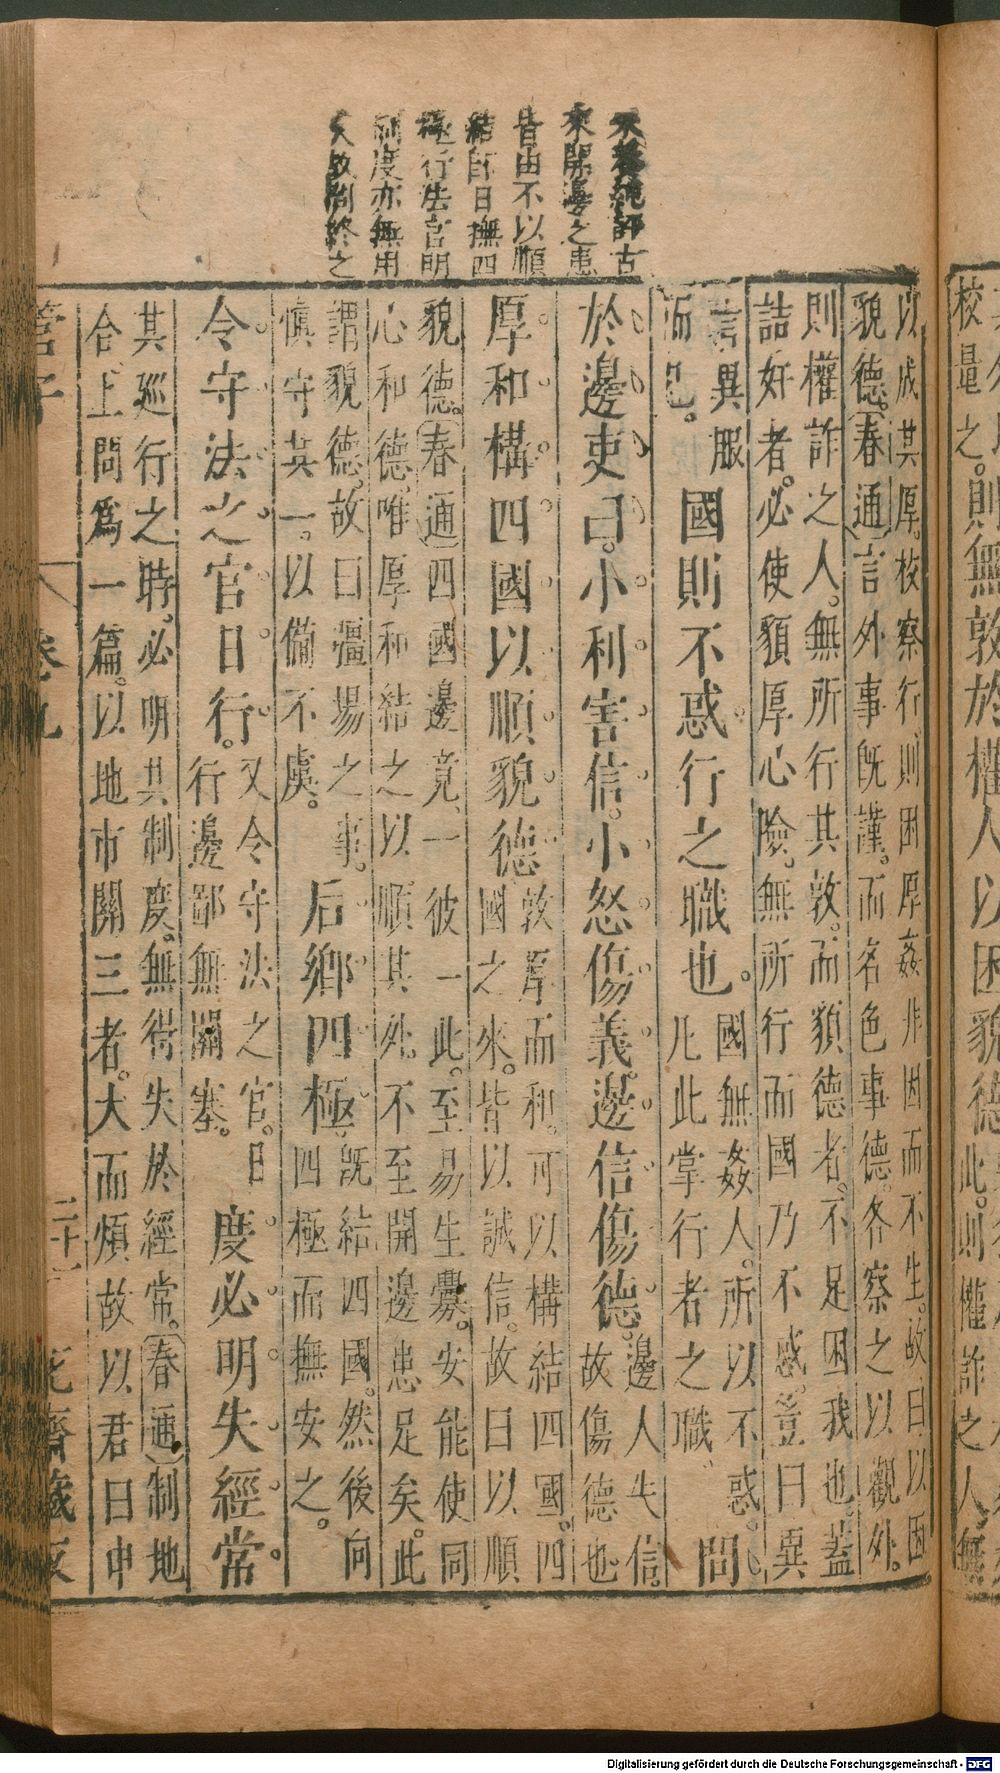 朱養純評古
來開邊之患
皆由不以順
結郎曰撫四
極行法官明
制度亦無用
人故問終之
以成其厚校察行則困厚姦非因而不生故曰以困
貌德。春通言外事既謹。而名色事德。各察之以觀外。
則權詐之人。無所行其敦。而額德者。不足困我也。蓋
詰奸者。必使額厚心險。無所行而國乃不惑。豈曰異
言異服
而已。
國則不惑行之職也。
國無姦人。所以不惑。
凡此掌行者之職。
問
於邊吏曰。小利害信。小怒傷義。邊信傷德。
邊人失信。
故傷德也
厚和構四國以順貌德
敦厚而和。可以構結四國。四
國之來。皆以誠信。故曰以順
貌德。春通四國邊竟、一彼一此。至易生釁。安能使同
心和德。唯厚和結之以順其外。不至開邊患足矣。此
謂貌德。故曰彊場之事。
慎守其一。以備不虞。
后鄉四極。
既結四國。然後向
四極而撫安之。
令守法之官日行。
又令守法之官。日
行邊鄙無關塞。
度必明失經常
其巡行之時。必明其制度。無得失於經常。春通制地
合上問爲一篇。以地市關三者。大而煩故以君曰中
管子
卷九
二十一
花齋藏板
校量之。則無敦於權人以困貌德
此。則權詐之人無
Digitalisierung gefördert durch die Deutsche Forschungsgemeinschaft - DFG